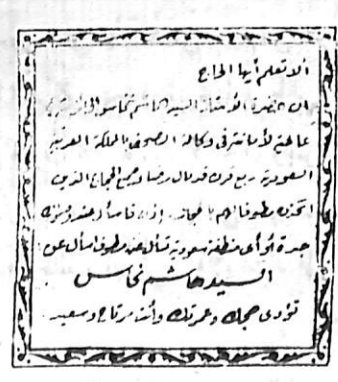 ألا تعلم أيها الحاج
إن حضرة الأستاذ السيد هاشم نحاس
في وكالة الصحف بالمملكة العربية
السعودية ربع قرن قد نال رضا جميع الحجاج الذين
اتخذوه مطوفا لهم بالحجاز. إذن فاسأل عند
جدة أو أى منطقة سعودية تسأل عن مطوف اسأل عن
السيد هاشم نحاس
تؤدى حجك وعمرتك وأنت مرتاح وسعيد.